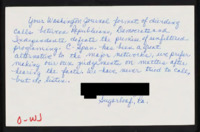 Your Washington Journal format of dividing
calls between Republicans, Democrats and
Independents defeats the premise of unfiltered
programming. C-Span has been a great
alternative to the major networks, we prefer
making our own judgements on matters after
hearing the facts. We have never tried to call,
but do listen.
Sugarloaf, Ca.
O-WJ